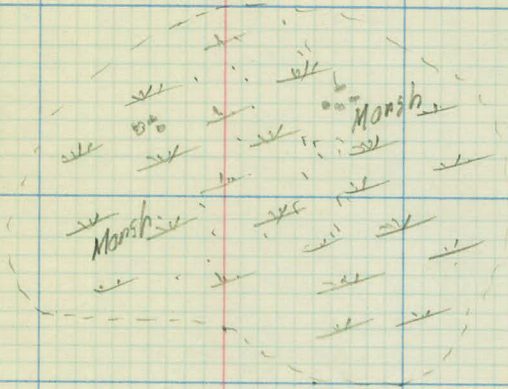 Marsh
Marsh